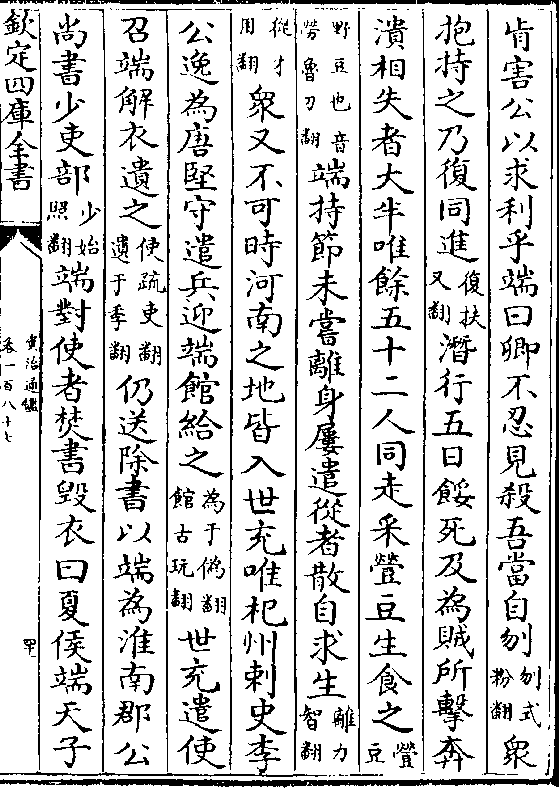 肯害公以求利乎端曰卿不忍見殺吾當自刎刎式粉翻衆
抱持之乃復同進復扶又翻潛行五日餒死及為賊所擊奔
潰相失者大半唯餘五十二人同走采豋豆生食之豋豆
野豆也音勞魯刀翻端持節未嘗離身屢遣從者散自求生離力智翻
從才用翻衆又不可時河南之地皆入世充唯杞州刺史李
公逸為唐堅守遣兵迎端館給之為于偽翻館古玩翻世充遣使
召端解衣遺之使疏吏翻遺于季翻仍送除書以端為淮南郡公
尚書少吏部少始照翻端對使者焚書毀衣曰夏侯端天子
欽定四庫全書
資治通鑑
卷一百八十七